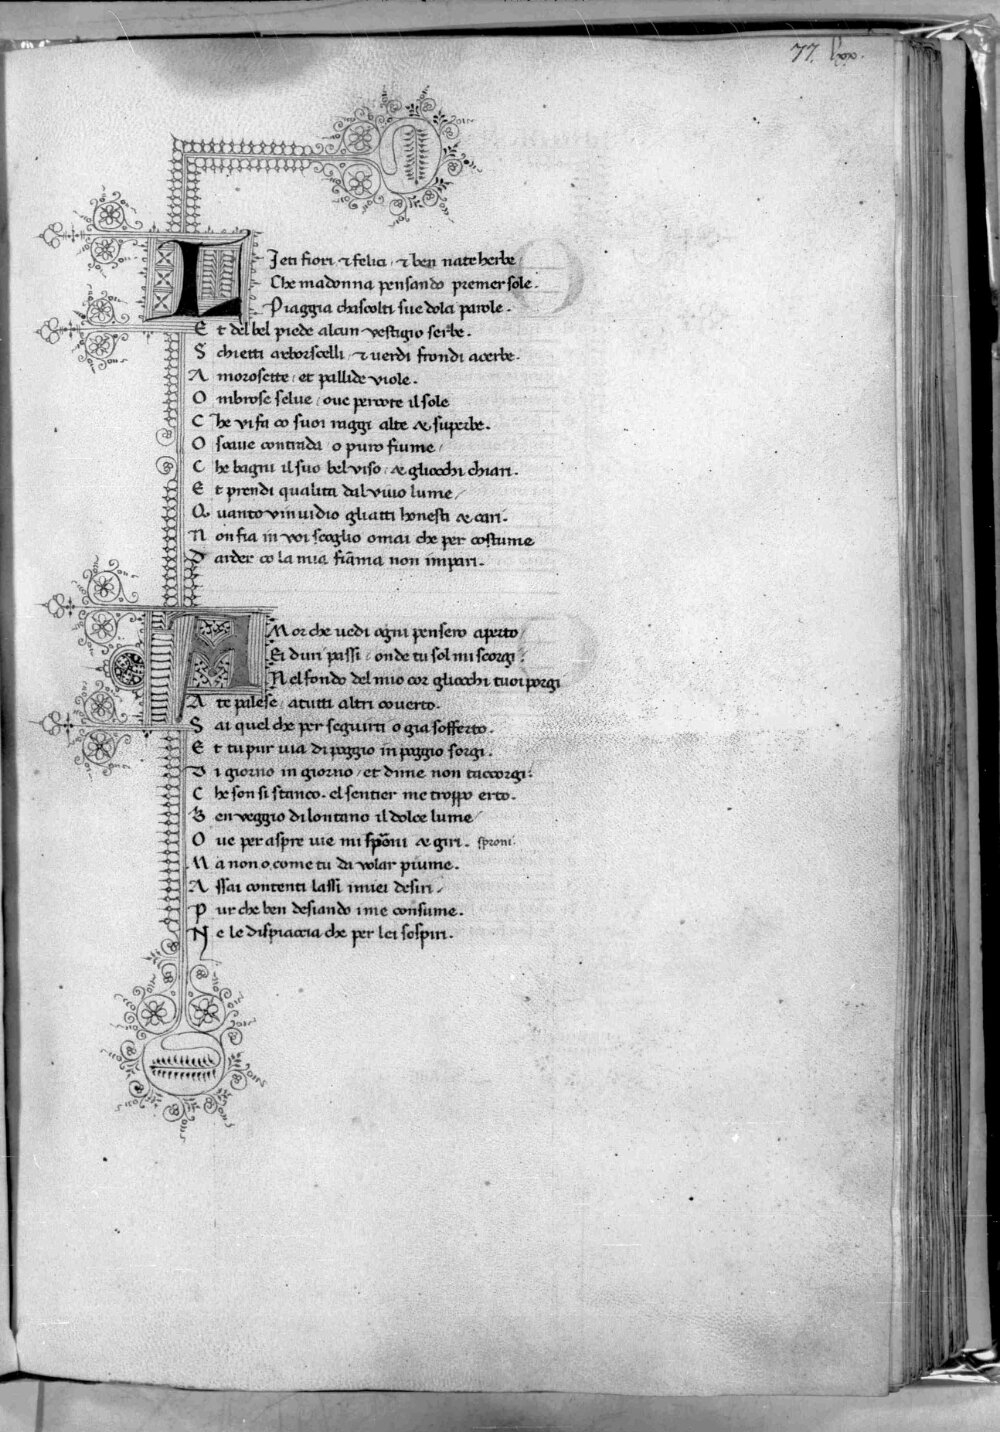 77. lxx.
LIeti fiori ⁊ felici, ⁊ ben nate herbe
Che madonna pensando premer sole.
Piaggia chascolti sue dolci parole.
Et del bel piede alcun vestigio serbe.
Schietti arborscelli, ⁊ uerdi frondi acerbe.
Amorosette, et pallide viole.
Ombrose selue, oue percote il sole
Che vi fa co suoi raggi alte & superbe.
O soaue contrada, o puro fiume,
Che bagni il suo bel viso, & gliocchi chiari.
Et prendi qualita dal viuo lume,
Quanto vinuidio gliatti honesti & cari.
Non fia in voi scoglio omai che per costume
Darder co la mia fiāma non impari.
AMor che uedi ogni pensero aperto,
Ei duri passi, onde tu sol mi scorgi,
Nel fondo del mio cor gliocchi tuoi porgi
A te palese, a tutti altri couerto.
Sai quel che per seguirti o gia sofferto.
Et tu pur via di poggio in poggio sorgi.
Di giorno in giorno, et di me non taccorgi.
Che son si stanco. el sentier me troppo erto.
Ben veggio di lontano il dolce lume,
Oue per aspre uie mi sproni & giri. sproni
Ma non o, come tu da volar piume.
Assai contenti lassi i miei desiri,
Pur che ben desiando i me consume.
Ne le dispiaccia che per lei sospiri.